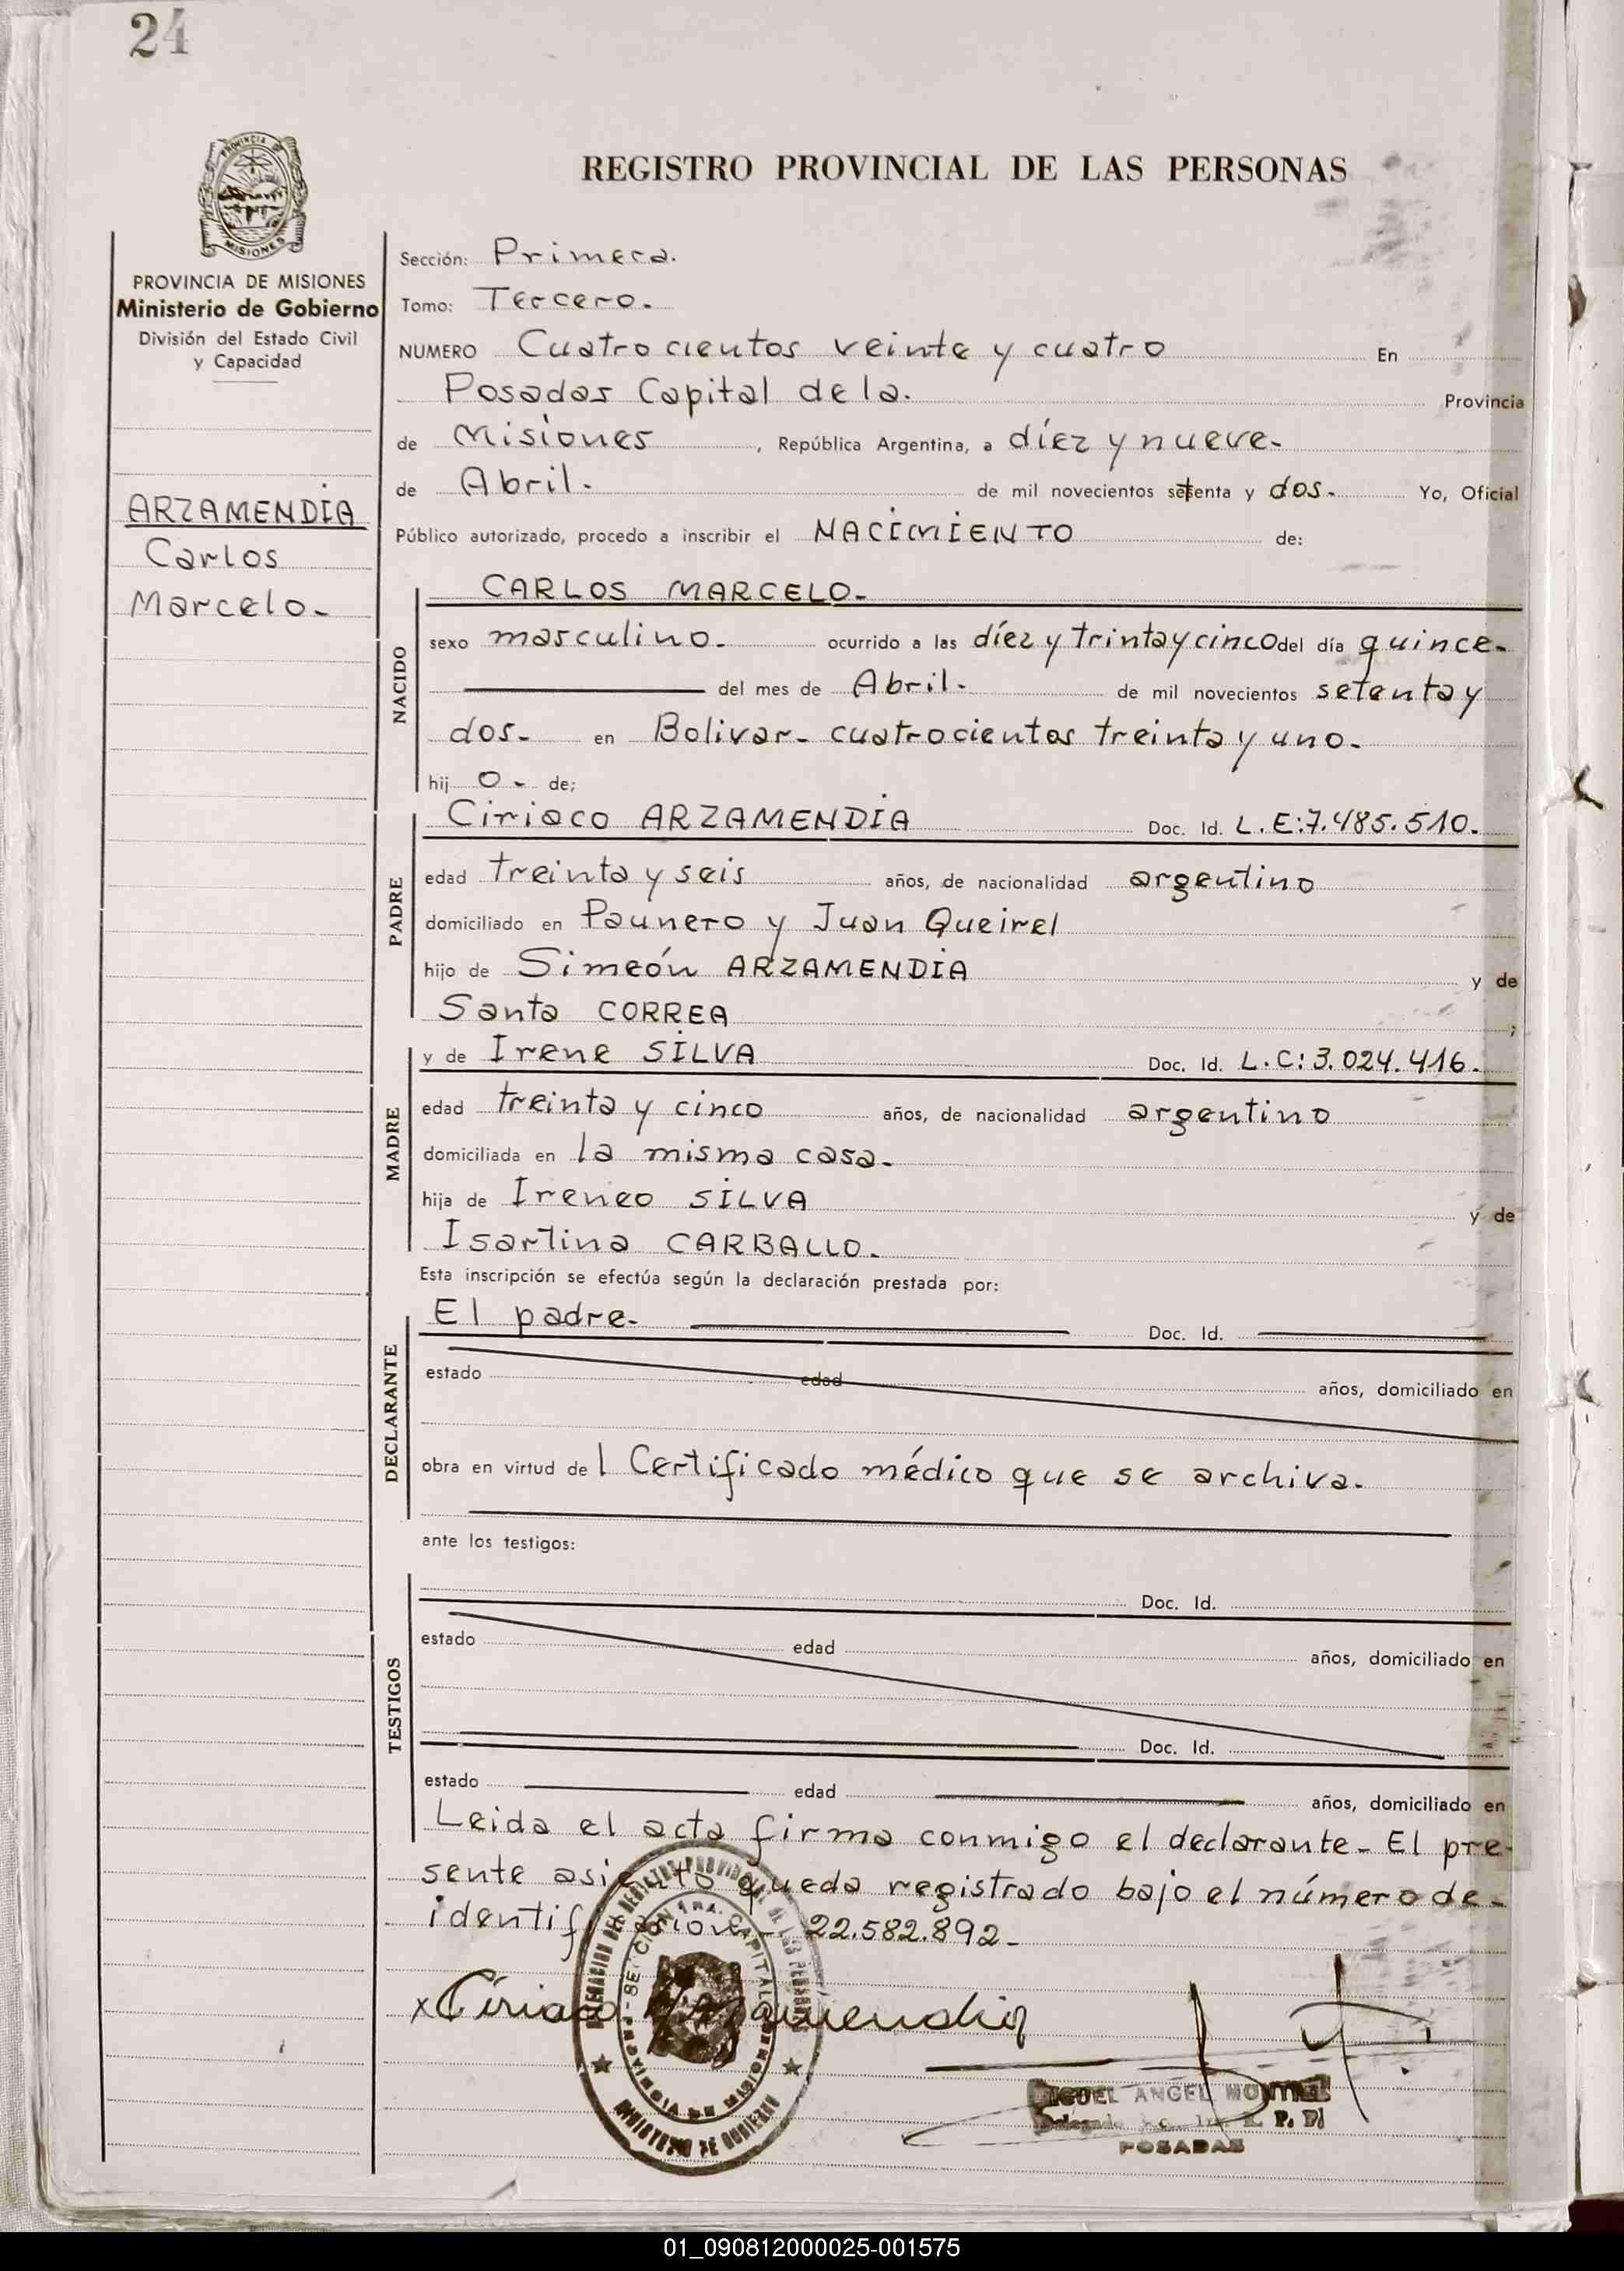 24
REGISTRO PROVINCIAL DE LAS PERSONAS
PROVINCIA DE MISIONES
Ministerio de Gobierno
División del Estado Civil
y Capacidad
ARZAMENDIA
Carlos
Marcelo.-
Sección: Primera.
Tomo: Tercero.-
NUMERO Cuatrocientos veinte y cuatro En
Posadas Capital de la. Provincia
de Misiones, República Argentina, a díez y nueve.-
de Abril.- de mil novecientos setenta y dos.- Yo, Oficial
Público autorizado, procedo a inscribir el NACIMIENTO de:
NACIDO
CARLOS MARCELO.-
sexo masculino.- ocurrido a las díez y trinta y cinco del día quince.-
del mes de Abril.- de mil novecientos setenta y
dos.- en Bolivar.- cuatrocientos treinta y uno.-
hij o.- de;
PADRE
Ciriaco ARZAMENDIA Doc. Id. L.E:7.485.510.-
edad treinta y seis años, de nacionalidad argentino
domiciliado en Paunero y Juan Queirel
hijo de Simeón ARZAMENDIA y de
Santa CORREA ;
MADRE
y de Irene SILVA Doc. Id. L.C:3.024.416.-
edad treinta y cinco años, de nacionalidad argentino
domiciliada en la misma casa.-
hija de Ireneo SILVA y de
Isartina CARBALLO.-
Esta inscripción se efectúa según la declaración prestada por:
DECLARANTE
El padre.- Doc. Id.
estado edad años, domiciliado en
obra en virtud de l Certificado médico que se archiva.-
ante los testigos:
TESTIGOS
Doc. Id.
estado edad años, domiciliado en
Doc. Id.
estado edad años, domiciliado en
Leida el acta firma conmigo el declarante.- El pre-
sente asiento queda registrado bajo el número de-
identificacion.- 22.582.892.-
x Ciriaco Arzamendia
MIGUEL ANGEL MONTIEL
POSADAS
MINISTERIO DE GOBIERNO
01_090812000025-001575